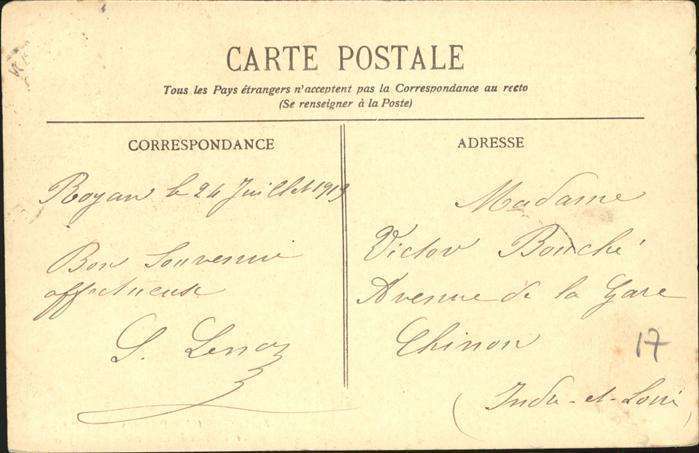 CARTE POSTALE
Tous les Pays étrangers n'acceptent pas la Correspondance au recto
(Se renseigner à la Poste)
CORRESPONDANCE
Royan le 24 Juillet 1919
Bon Souvenir
affectueux
S. Lenoz
ADRESSE
Madame
Victor Bouché
Avenue de la Gare
Chinon
17
(Indre-et-Loire